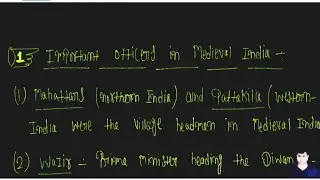 13 Important officers in Medieval India -
(1) Mahattars (northern India) and Pattakila (western
India were the village headmen in Medieval India
(2) Wazir - Prime minister heading the Diwan -